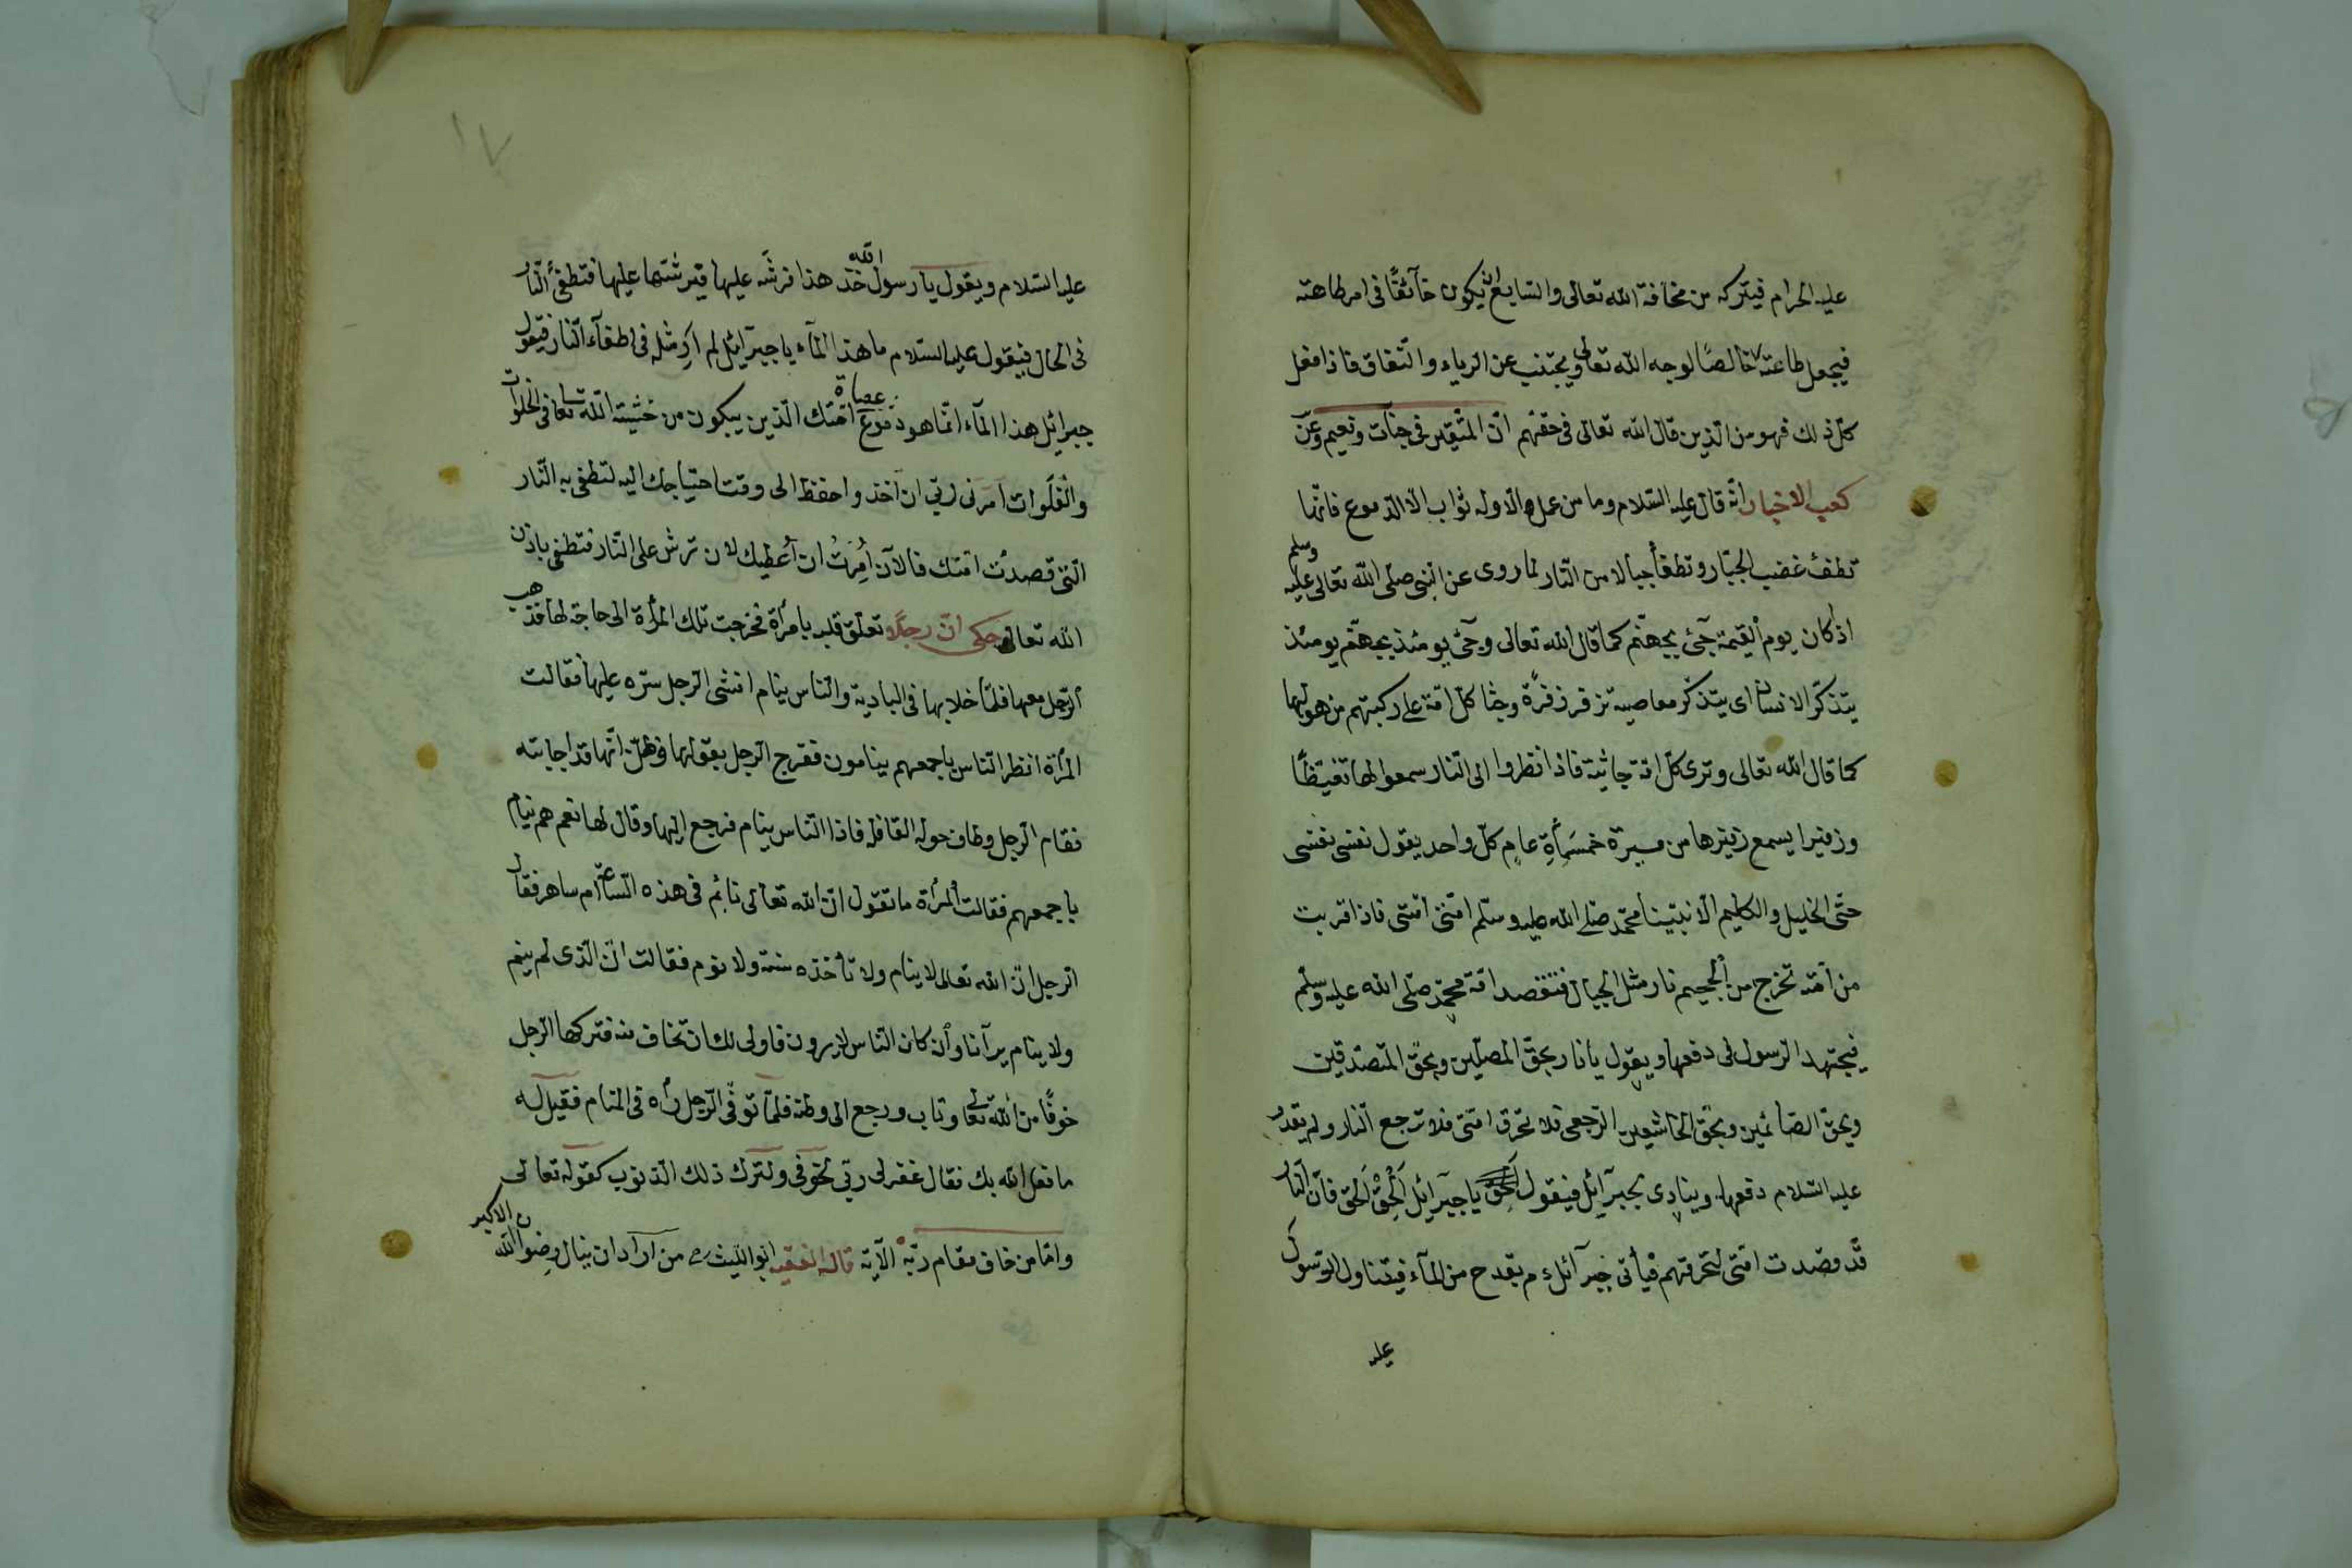 عليه الحرام فيتركه من مخافة الله تعالى والسابع ان يكون خآئفًا فى امر طاعته
فيجعل طاعته خالصًا لوجه الله تعالى ويجتنب عن الرياء والنفاق فاذا فعل
كلّ ذلك فهو من الذين قال الله تعالى فى حقهم انّ المتقين فى جنّات ونعيم وعن
كعب الاخبار انّه قال عليه السّلام وما من عمل الا وله ثواب الّا الدّموع فانّها
تطفئ غضب الجبّار وتطفأ جبالا من النّار لما روى عن النبى صلى الله تعالى عليه وسلم
اذ كان يوم القيمة جئ بجهنّم كما قال الله تعالى وجئ يومئذ بجهنّم يومئذ
يتذكّر الانسان اى يتذكر معاصيه تزفر زفرة وجثا كلّ امّة على ركبتهم من هولها
كما قال الله تعالى وترى كلّ امّة جاثية فاذا نظروا الى النّار سمعوا لها تغيّظًا
وزفيرا يسمع زفيرها من مسيرة خمسمأة عام كلّ واحد يقول نفسى نفسى
حتّى الخليل والكليم الّا نبيّنا محمّد صلى الله عليه وسلّم امّتى امّتى فاذا قربت
من امّته تخرج من الجحيم نار مثل الجبال فتقصد امّة محمّد صلّى الله عليه وسلّم
فيجتهد الرسول فى دفعها ويقول يا نار بحقّ المصلّين وبحقّ المتصدّقين
وبحقّ الصّائمين وبحقّ الخاشعين ارجعى فلا تحرق امّتى فلا ترجع النّار ولم يقدر
عليه السّلام دفعها وينادى بجبرآئيل فيقول يا جبرآئيل اَلْحِقْ اَلحق فانّ النّار
قد قصدت امّتى لتحرقهم فيأتى جبرآئل ءم بقدح من المآء فيتناول الرّسول
عليه
١٧
عليه السّلام ويقول يا رسول الله خذ هذا فرشّه عليها فيرشّها عليها فتطفئ النّار
فى الحال فيقول عليه السّلام ما هذا المآء يا جبرآئل لم اَرَ مثله فى اطفآء النّار فيقول
جبرائل هذا المآء انّما هو دموع عصاة امّتك الّذين يبكون من خشية الله تعا فى الخلوات
والفلوات امرنى ربّى ان آخذ واحفظ الى وقت احتياجك اليه لتطفى به النّار
الّتى قصدت امّتك فالآن اُمِرتُ ان اُعطيك لان ترش على النّار فتطفى باذن
الله تعالى حكى انّ رجلًا تعلّق قلبه بامرأة فخرجت تلك المرأة الى حاجة لها فذهب
الرّجل معها فلمّا خلا بها فى البادية والناس ينام افشى الرجل سرّه عليها فقالت
المرأة انظر النّاس باجمعهم ينامون ففرح الرّجل بقولها وظنّ انّها قد اجابته
فقام الرّجل وطاف حول القافلة فاذا النّاس ينام فرجع اليها وقال لها نعم هم نيام
باجمعهم فقالت المرأة ما تقول انّ الله تعالى نائم فى هذه السّاعة ام ساهر فقال
الرّجل انّ الله تعالى لا ينام ولا تأخذه سنة ولا نوم فقالت انّ الّذى لم ينم
ولا ينام يرآنا وان كان النّاس لا يرون فاولى لك ان تخاف منه فتركها الرّجل
خوفًا من الله تعالى وتاب ورجع الى وطنه فلمّا توفّى الرّجل رأه فى المنام فقيل له
ما فعل الله بك فقال غفرلى ربّى بخوفى ولترك ذلك الذنوب كقوله تعالى
وامّا من خاف مقام ربّه الآية قال الفقيه ابو اللّيث رح من ارآد ان ينال رضوان الله الاكبر